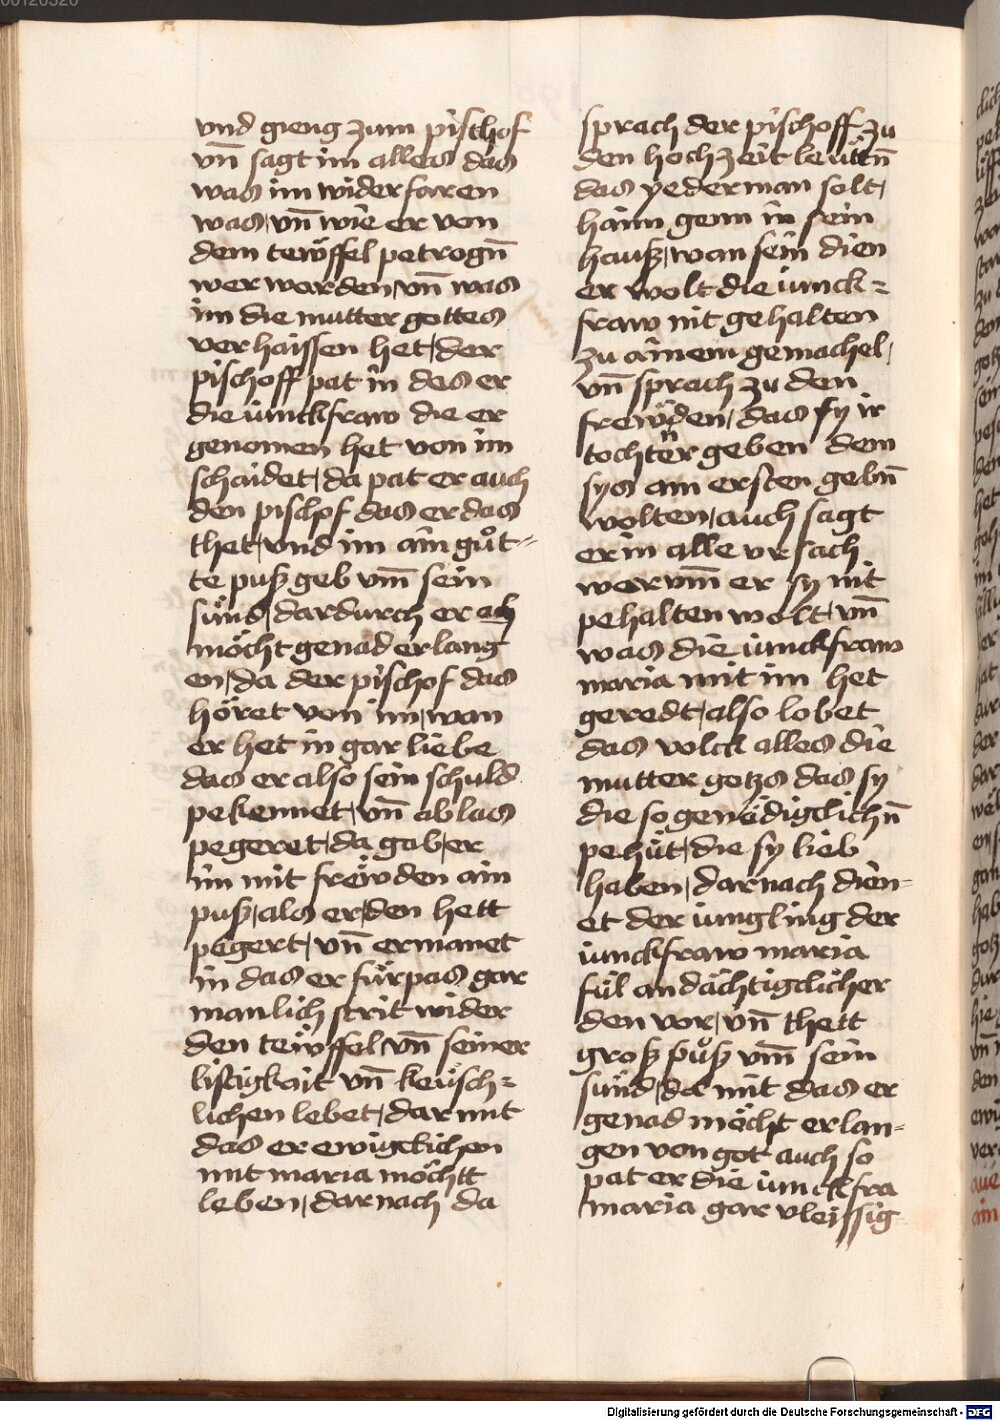 und gieng zum pischof
vn̄ sagt im alles das
was im widerfaren
was, vn̄ wie er von
dem tewffel petrogn̄
wer worden, vn̄ was
im die mutter gottes
verhaissen het, der
pischoff pat in das er
die iunckfraw die er
genomen het von im
schaidet, da pat er auch
den pischof das er das
thet, vnd im ain gůt-
te puß geb vm̄ sein
sünd, dardurch er
möcht genad erlang
en, da der pischof das
höret von im, wan
er het in gar liebe
das er also sein schuld
pekennet, vn̄ ablas
pegeret, da gab, er
im mit frewden ain
puß, als er, den hett
pegert, vn̄ ermanet
in das er fürpas gar
manlich strit wider
den tewffel, vn̄ seiner
listigkait vn̄ keüsch-
lichen lebet, dar mit
das er ewigclichen
mit maria möchtt
leben, darnach da
sprach der pischoff zu
den hochzeit leüttn̄
das yederman solt,
haim genn in sein
hauß, wan sein dien
er wolt die iunck-
fraw nit gehalten
zu ainem gemachel,
vn̄ sprach zu den
frewnden, das sy ir
tochter geben dem
sys am ersten gebn̄
wolten, auch sagt
er in alle vrsach
warvm̄ er sy nit
pehalten wolt, vn̄
was die iunckfraw
maria mit im het
geredt, also lobet
das volck alles die
mutter gotzs das sy
die so genädigclichn̄
pehüt, die sy lieb
haben, darnach dien-
et der iungling der
iunckfraw maria
fül andächtigclicher
den vor, vn̄ thett
groß půß vm̄ sein
sünd, da mit das er
genad möcht erlan-
gen von got auch so
pat er die iunckfra
maria gar vleissig
Digitalisierung gefördert durch die Deutsche Forschungsgemeinschaft - DFG